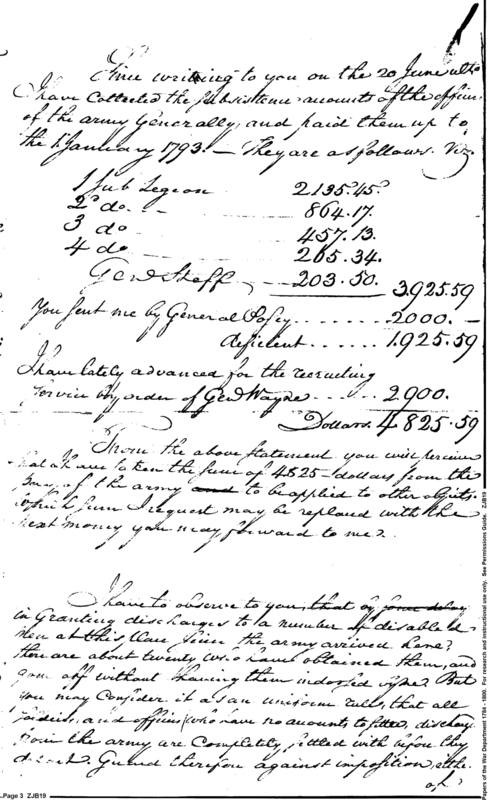 Since writing to you on the 20 June ulto
I have collected the subsistence accounts of the officers
of the army Generally, and paid them up to
the 1 January 1793. — They are as follows. Viz.
1 Sub Legion 2135.45.
2d do. 864.17.
3 do 457.13.
4 do 265.34.
Genl Staff 203.50. 3,925.59
You sent me by General Posey 2000. —
deficient 1,925.59
I have lately advanced for the recruiting
service by order of Genl Wayne 2900.
Dollars. 4825.59
From the above statement you will perceive
that I have taken the sum of 4825 — dollars from the
pay of the army and to be applied to other objects,
which sum I request may be replaced with the
next money you may forward to me.
I have to observe to you, that by some delay
in Granting discharges to a number of disabled
men at this place since the army arrived here,
there are about twenty who have obtained them, and
gone off without having them indorsed But
you may Consider it as an uniform rule, that all
soldiers, and officers (who have no amounts to settle, discharg
from the army are Completely settled with before they
depart. Guard therefore against imposition, at the
of
Page 3 ZJB19
Papers of the War Department 1784 - 1800. For research and instructional use only. See Permissions Guide. ZJB19